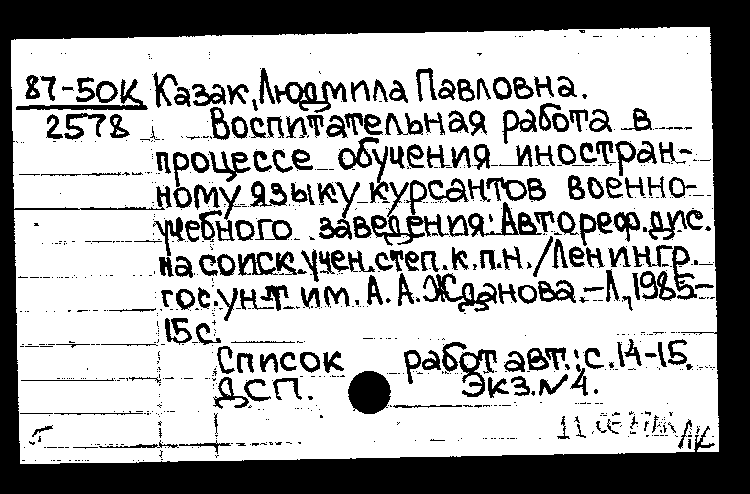 87-50К Казак, Людмила Павловна.
2578 Воспитательная работа в
процессе обучения иностран-
ному языку курсантов военно-
учебного заведения: Автореф. дис.
на соиск. учен. степ. к.п.н. / Ленингр.
гос. ун-т им. А. А. Жданова. – Л., 1985 –
15 с.
Список работ авт.: с. 14-15.
ДСП. Экз. № 4.
11
ЛК